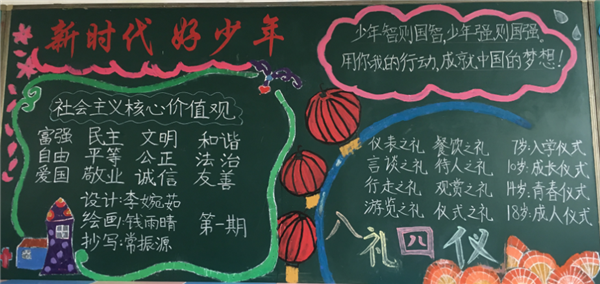 新时代好少年
社会主义核心价值观
富强 民主 文明 和谐
自由 平等 公正 法治
爱国 敬业 诚信 友善
设计:李婉茹
绘画:钱雨晴
抄写:常振源
第一期
少年智则国智,少年强则国强。
用你我的行动,成就中国的梦想!
仪表之礼 餐饮之礼 7岁:入学仪式
言谈之礼 待人之礼 10岁:成长仪式
行走之礼 观赏之礼 14岁:青春仪式
游览之礼 仪式之礼 18岁:成人仪式
八礼四仪